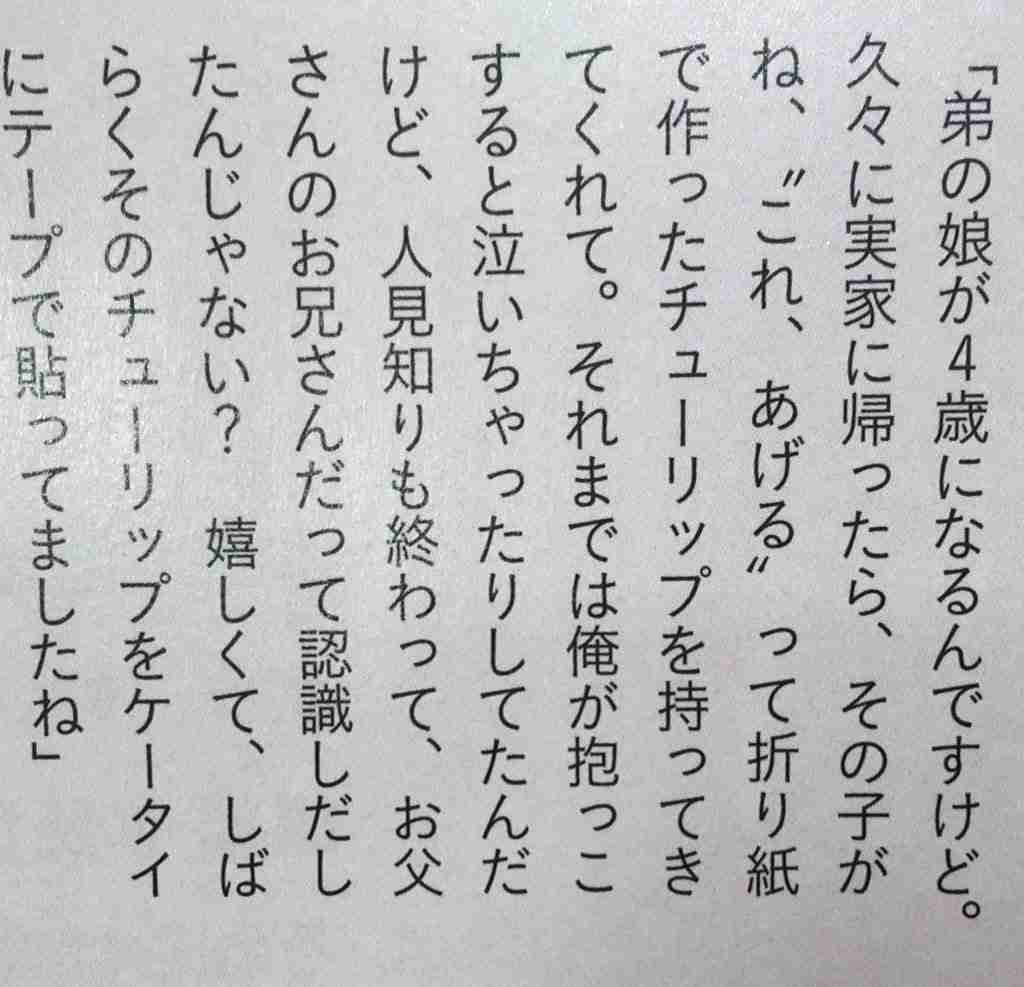 「弟の娘が4歳になるんですけど。
久々に実家に帰ったら、その子が
ね、〝これ、あげる〟って折り紙
で作ったチューリップを持ってき
てくれて。それまでは俺が抱っこ
すると泣いちゃったりしてたんだ
けど、人見知りも終わって、お父
さんのお兄さんだって認識しだし
たんじゃない？ 嬉しくて、しば
らくそのチューリップをケータイ
にテープで貼ってましたね」